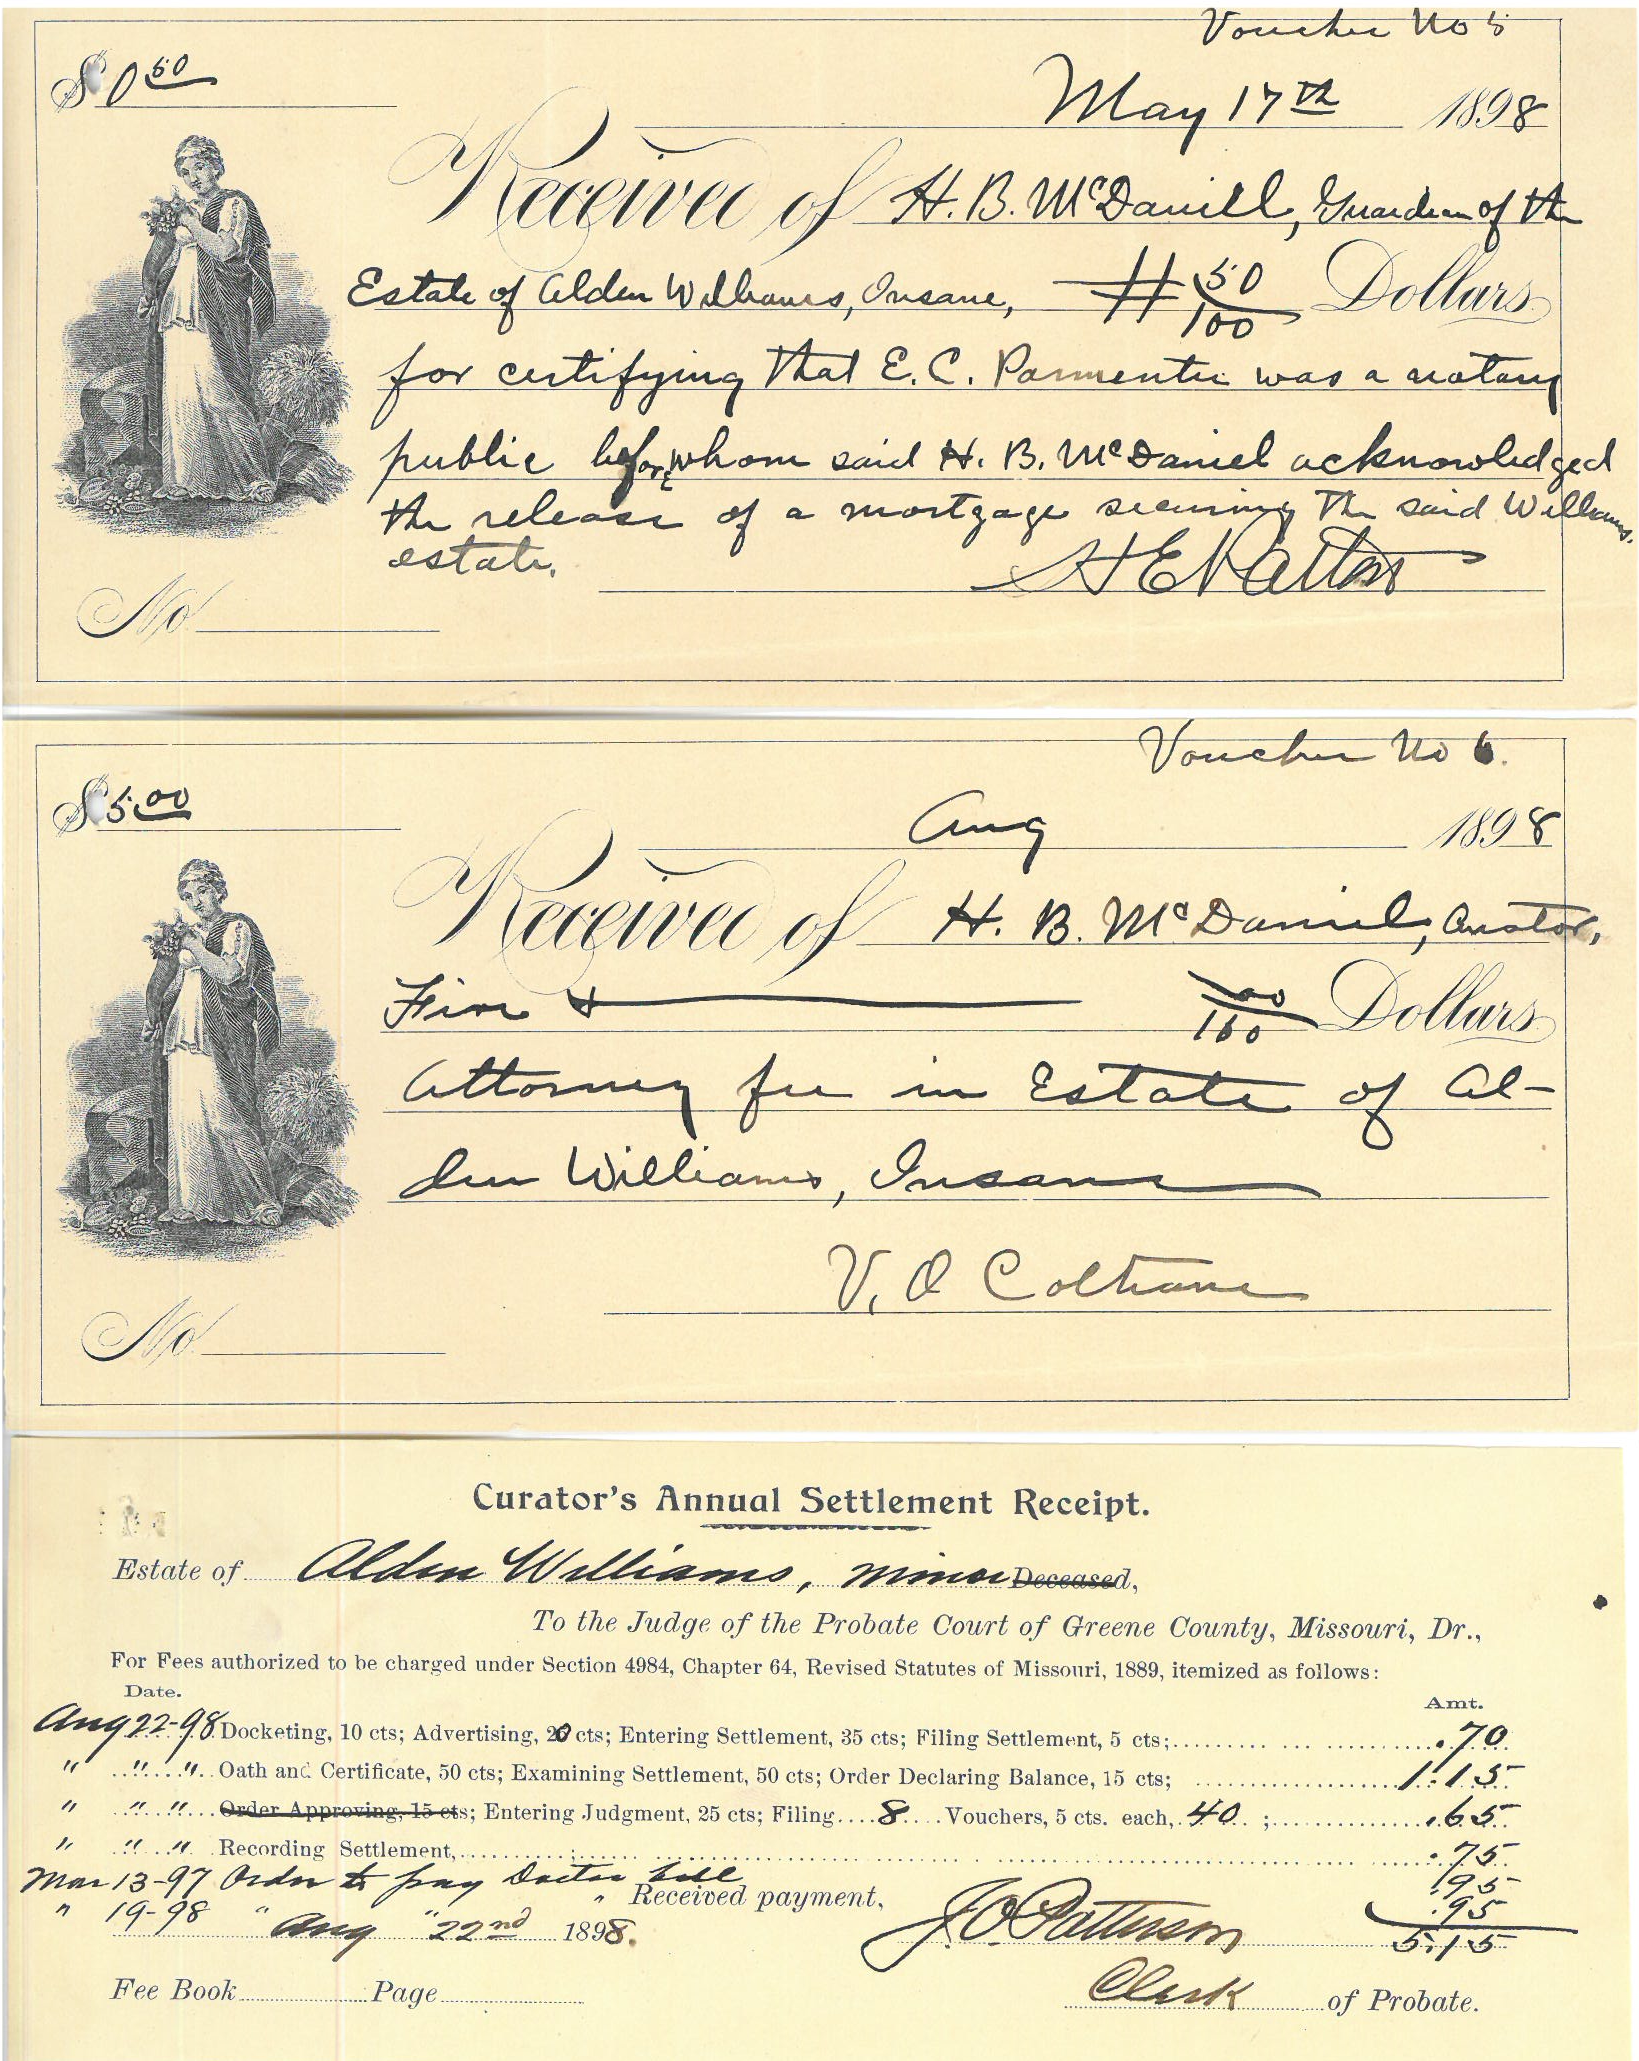 Voucher No 5
$ 0 50
May 17th 1898
Received of H. B. McDaniel, Guardian of the
Estate of Alden Williams, Insane, 50/100 Dollars
for certifying that E. C. Parmenter was a notary
public before whom said H. B. McDaniel acknowledged
the release of a mortgage securing the said Williams
estate.
H E Patton
No
Voucher No 6.
$ 5.00
Aug 1898
Received of H. B. McDaniel,
Five & 00/100 Dollars
Attorney fee in Estate of Al-
den Williams, Insane
V. O Coltrane
No
Curator's Annual Settlement Receipt.
Estate of Alden Williams, minor Deceased,
To the Judge of the Probate Court of Greene County, Missouri, Dr.,
For Fees authorized to be charged under Section 4984, Chapter 64, Revised Statutes of Missouri, 1889, itemized as follows:
Date. Amt.
Aug 22-98 Docketing, 10 cts; Advertising, 20 cts; Entering Settlement, 35 cts; Filing Settlement, 5 cts; .70
" " " Oath and Certificate, 50 cts; Examining Settlement, 50 cts; Order Declaring Balance, 15 cts; 1.15
" " " Order Approving, 15 cts; Entering Judgment, 25 cts; Filing 8 Vouchers, 5 cts. each, 40 ; .65
" " " Recording Settlement, .75
Mar 13-97 Order to pay Doctor bill .95
" 19-98 " " " .95
Received payment,
Aug 22nd 1898. J. O. Patterson 5.15
Fee Book Page Clerk of Probate.